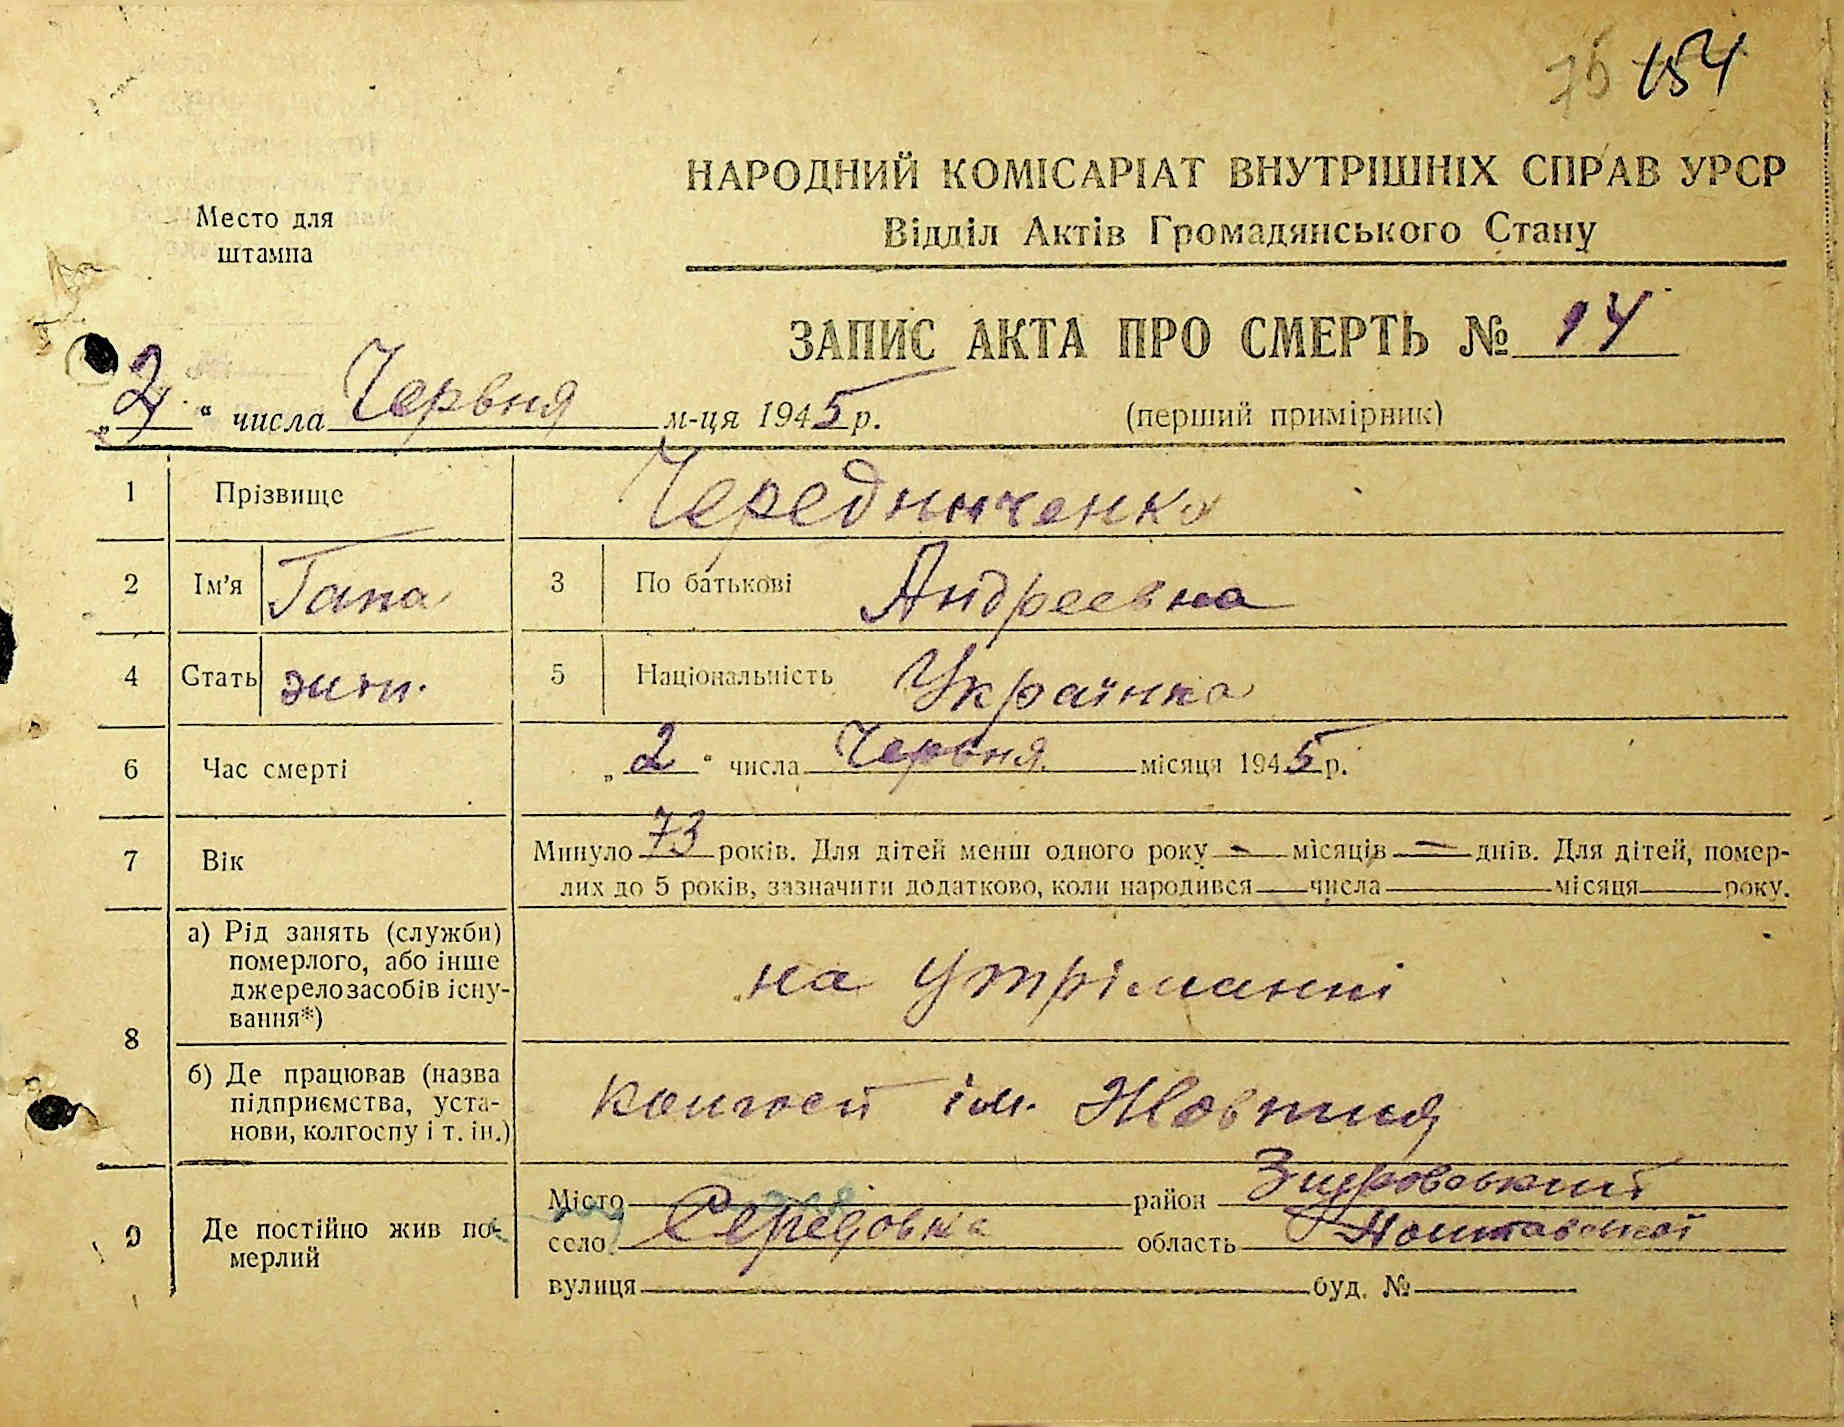 75 154
НАРОДНИЙ КОМІСАРІАТ ВНУТРІШНІХ СПРАВ УРСР
Відділ Актів Громадянського Стану
Место для
штампа
ЗАПИС АКТА ПРО СМЕРТЬ № 14
„2“ числа Червня м-ця 1945 р.
(перший примірник)
1 Прізвище Чередниченко
2 Ім'я Гапа 3 По батькові Андреевна
4 Стать жін. 5 Національність Українка
6 Час смерті „2“ числа Червня місяця 1945 р.
7 Вік Минуло 73 років. Для дітей менш одного року — місяців — днів. Для дітей, помер-
лих до 5 років, зазначити додатково, коли народився числа місяця року.
8 а) Рід занять (служби)
померлого, або інше
джерело засобів існу-
вання*)
на утріманні
б) Де працював (назва
підприємства, уста-
нови, колгоспу і т. ін.)
колгосп ім. Жовтня
9 Де постійно жив по-
мерлий
Місто район Згуровський
село Середовка область Полтавської
вулиця буд. №